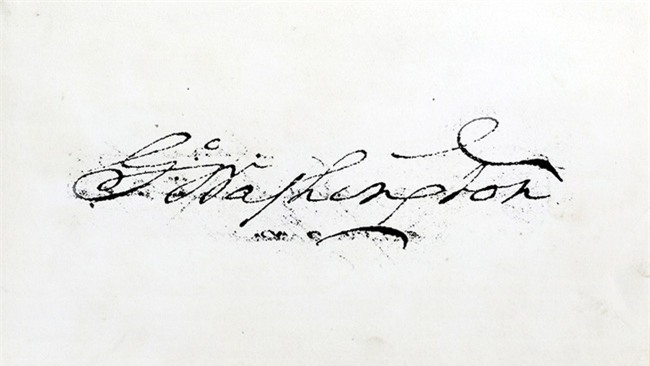 G Washington